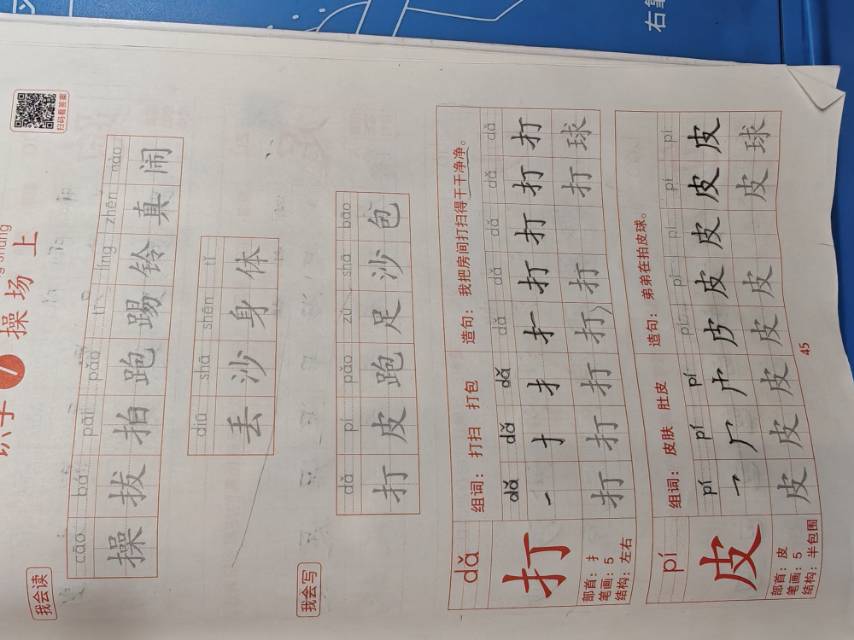 操场上
扫码看答案
我会读
cāo bá pāi pǎo tī líng zhēn nào
操拔拍跑踢铃真闹
diū shā shēn tǐ
丢沙身体
我会写
dǎ pí pǎo zú shā bāo
打皮跑足沙包
dǎ
组词：打扫 打包 造句：我把房间打扫得干干净净。
dǎ dǎ dǎ dǎ dǎ dǎ dǎ dǎ
打
部首：扌
笔画：5
结构：左右
打打打打打打球
pí
组词：皮肤 肚皮 造句：弟弟在拍皮球。
pí pí pí pí pí pí pí pí
皮
部首：皮
笔画：5
结构：半包围
皮皮皮皮皮皮球
45